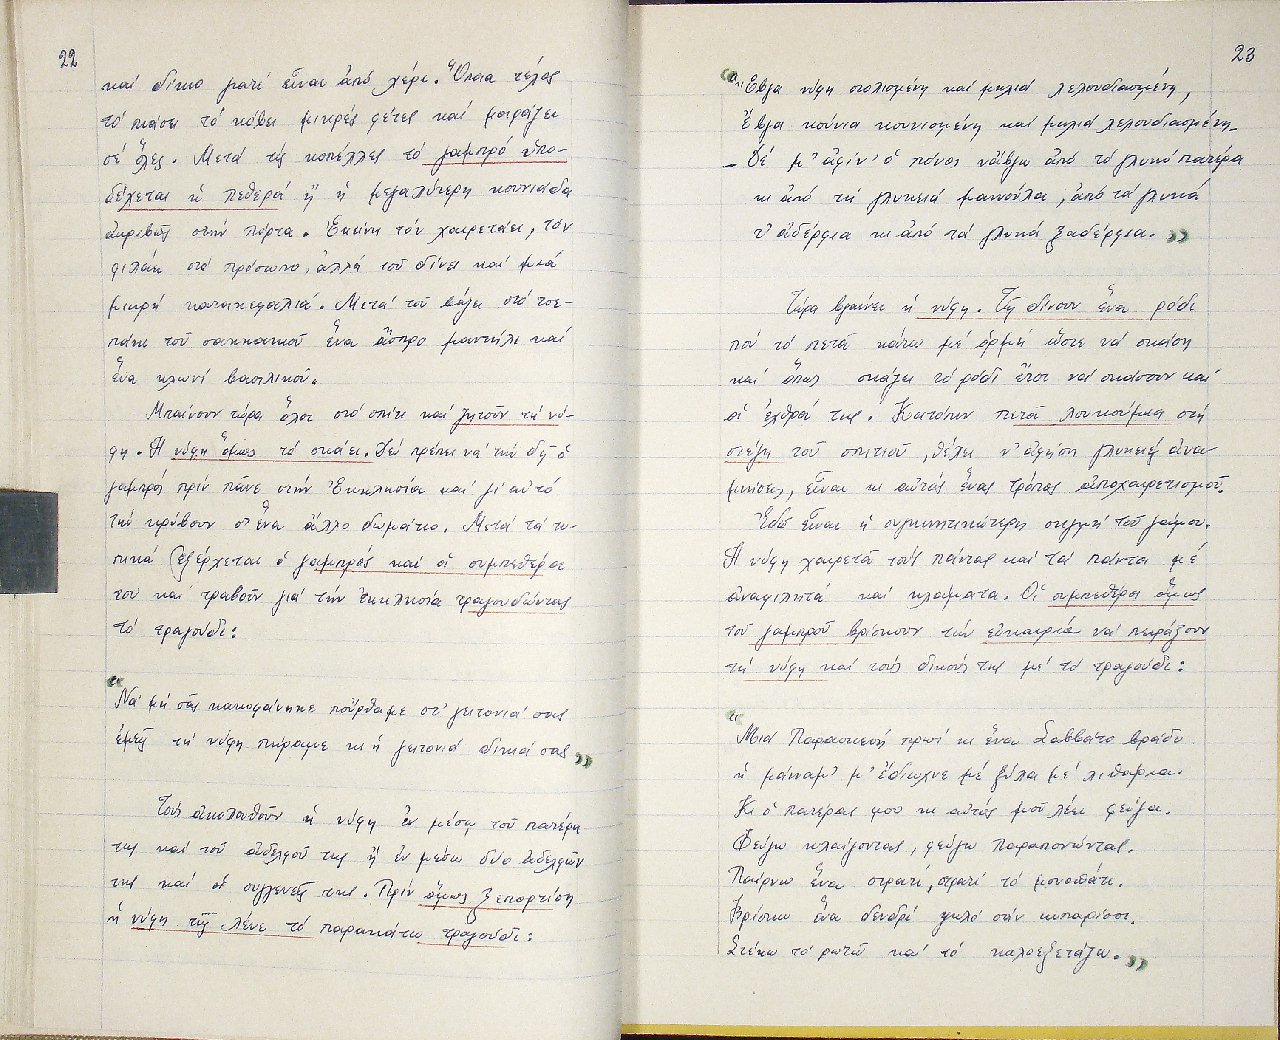 22
καί δίπλα γιατί εἶναι ἀπό χέρι. Ὅποια τέλος
τό πιάσει τό κόβει μικρές φέτες καί μοιράζει
σέ ὅλες. Μετά τίς κοπέλλες τό γαμπρό ὑπο-
δέχεται ἡ πεθερά ἤ ἡ μεγαλύτερη κουνιάδα
ἀκριβῶς στήν πόρτα. Ἐκείνη τόν χαιρετάει, τόν
φιλάει στό πρόσωπο, ἀλλά τοῦ δίνει καί μιά
μικρή καταπεφαλιά. Μετά τοῦ βάζει στό τσε-
πάκι τοῦ σακκακιοῦ ἕνα ἄσπρο μαντήλι καί
ἕνα κλωνί βασιλικοῦ.
Μπαίνουν τώρα ὅλοι στό σπίτι καί ζητοῦν τή νύ-
φη. Ἡ νύφη ὅμως τό σκάει. Δέν πρέπει νά τήν δῇ ὁ
γαμπρός πρίν πᾶνε στήν Ἐκκλησία καί γι αὐτό
τήν κρύβουν σ' ἕνα ἄλλο δωμάτιο. Μετά τά τυ-
πικά ἐξέρχεται ὁ γαμπρός καί οἱ συμπεθέροι
του καί τραβοῦν γιά τήν ἐκκλησία τραγουδώντας
τό τραγούδι:
“Νά μή σᾶς κακοφάνηκε πούρθαμε στ' γειτονιά σας
ἐμεῖς τή νύφη πήραμε κι ἡ γειτονιά δικιά σας”
Τούς ἀκολουθοῦν ἡ νύφη ἐν μέσῳ τοῦ πατέρα
της καί τοῦ ἀδελφοῦ της ἤ ἐν μέσῳ δύο ἀδελφῶν
της καί οἱ συγγενεῖς της. Πρίν ὅμως ξεπορτίση
ἡ νύφη τῆς λένε τό παρακάτω τραγούδι:
23
“Ἔβγα νύφη στολισμένη καί μηλιά λελουδιασμένη,
Ἔβγα κούνια κουνισμένη καί μηλιά λελουδιασμένη_
_ Δέ μ' ἀφίν' ὁ πόνος νἄβγω ἀπό τό γλυκό πατέρα
κι ἀπό τή γλυκειά μαννούλα, ἀπό τά γλυκά
τ' ἀδέρφια κι ἀπό τά γλυκά ξαδέρφια.”
Τώρα βγαίνει ἡ νύφη. Τῆς δίνουν ἕνα ρόδι
πού τό πετᾶ κάτω μέ ὁρμή ὥστε νά σκάση
καί ὅπως σκάζει τό ρόδι ἔτσι νά σκάσουν καί
οἱ ἐχθροί της. Κατόπιν πετᾶ λουκούμια στή
στέγη τοῦ σπιτιοῦ, θέλει ν' ἀφήση γλυκειά ἀνα-
μνήσεις, εἶναι κι αὐτός ἕνας τρόπος ἀποχαιρετισμοῦ.
Ἐδῶ εἶναι ἡ συγκινητικώτερη στιγμή τοῦ γάμου.
Ἡ νύφη χαιρετᾶ τούς πάντας καί τά πάντα μέ
ἀναφιλητά καί κλάματα. Οἱ συμπεθέροι ὅμως
τοῦ γαμπροῦ βρίσκουν τήν εὐκαιρία νά πειράξουν
τή νύφη καί τούς δικούς της μέ τό τραγούδι:
“Μιά Παρασκευή πρωί κι ἕνα Σαββάτο βράδυ
ἡ μάνναμ' μ' ἔδιωχνε μέ ξύλα μέ λιθάρια.
Κι ὁ πατέρας μου κι αὐτός μοῦ λέει φεύγα.
Φεύγω κλαίγοντας, φεύγω παραπονώντας.
Παίρνω ἕνα στρατί, στρατί τό μονοπάτι.
Βρίσκω ἕνα δενδρί ψηλό σάν κυπαρίσσι.
Στέκω τό ρωτῶ καί τό καλοεξετάζω.”